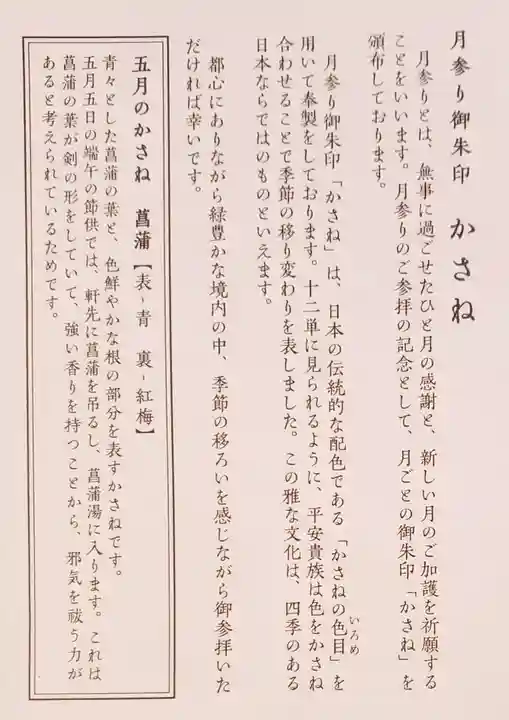 月参り御朱印　かさね
月参りとは、無事に過ごせたひと月の感謝と、新しい月のご加護を祈願する
ことをいいます。月参りのご参拝の記念として、月ごとの御朱印「かさね」を
頒布しております。
月参り御朱印「かさね」は、日本の伝統的な配色である「かさねの色目」を
いろめ
用いて奉製をしております。十二単に見られるように、平安貴族は色をかさね
合わせることで季節の移り変わりを表しました。この雅な文化は、四季のある
日本ならではのものといえます。
都心にありながら緑豊かな境内の中、季節の移ろいを感じながら御参拝いた
だければ幸いです。
五月のかさね　菖蒲【表-青　裏-紅梅】
青々とした菖蒲の葉と、色鮮やかな根の部分を表すかさねです。
五月五日の端午の節供では、軒先に菖蒲を吊るし、菖蒲湯に入ります。これは
菖蒲の葉が剣の形をしていて、強い香りを持つことから、邪気を祓う力が
あると考えられているためです。